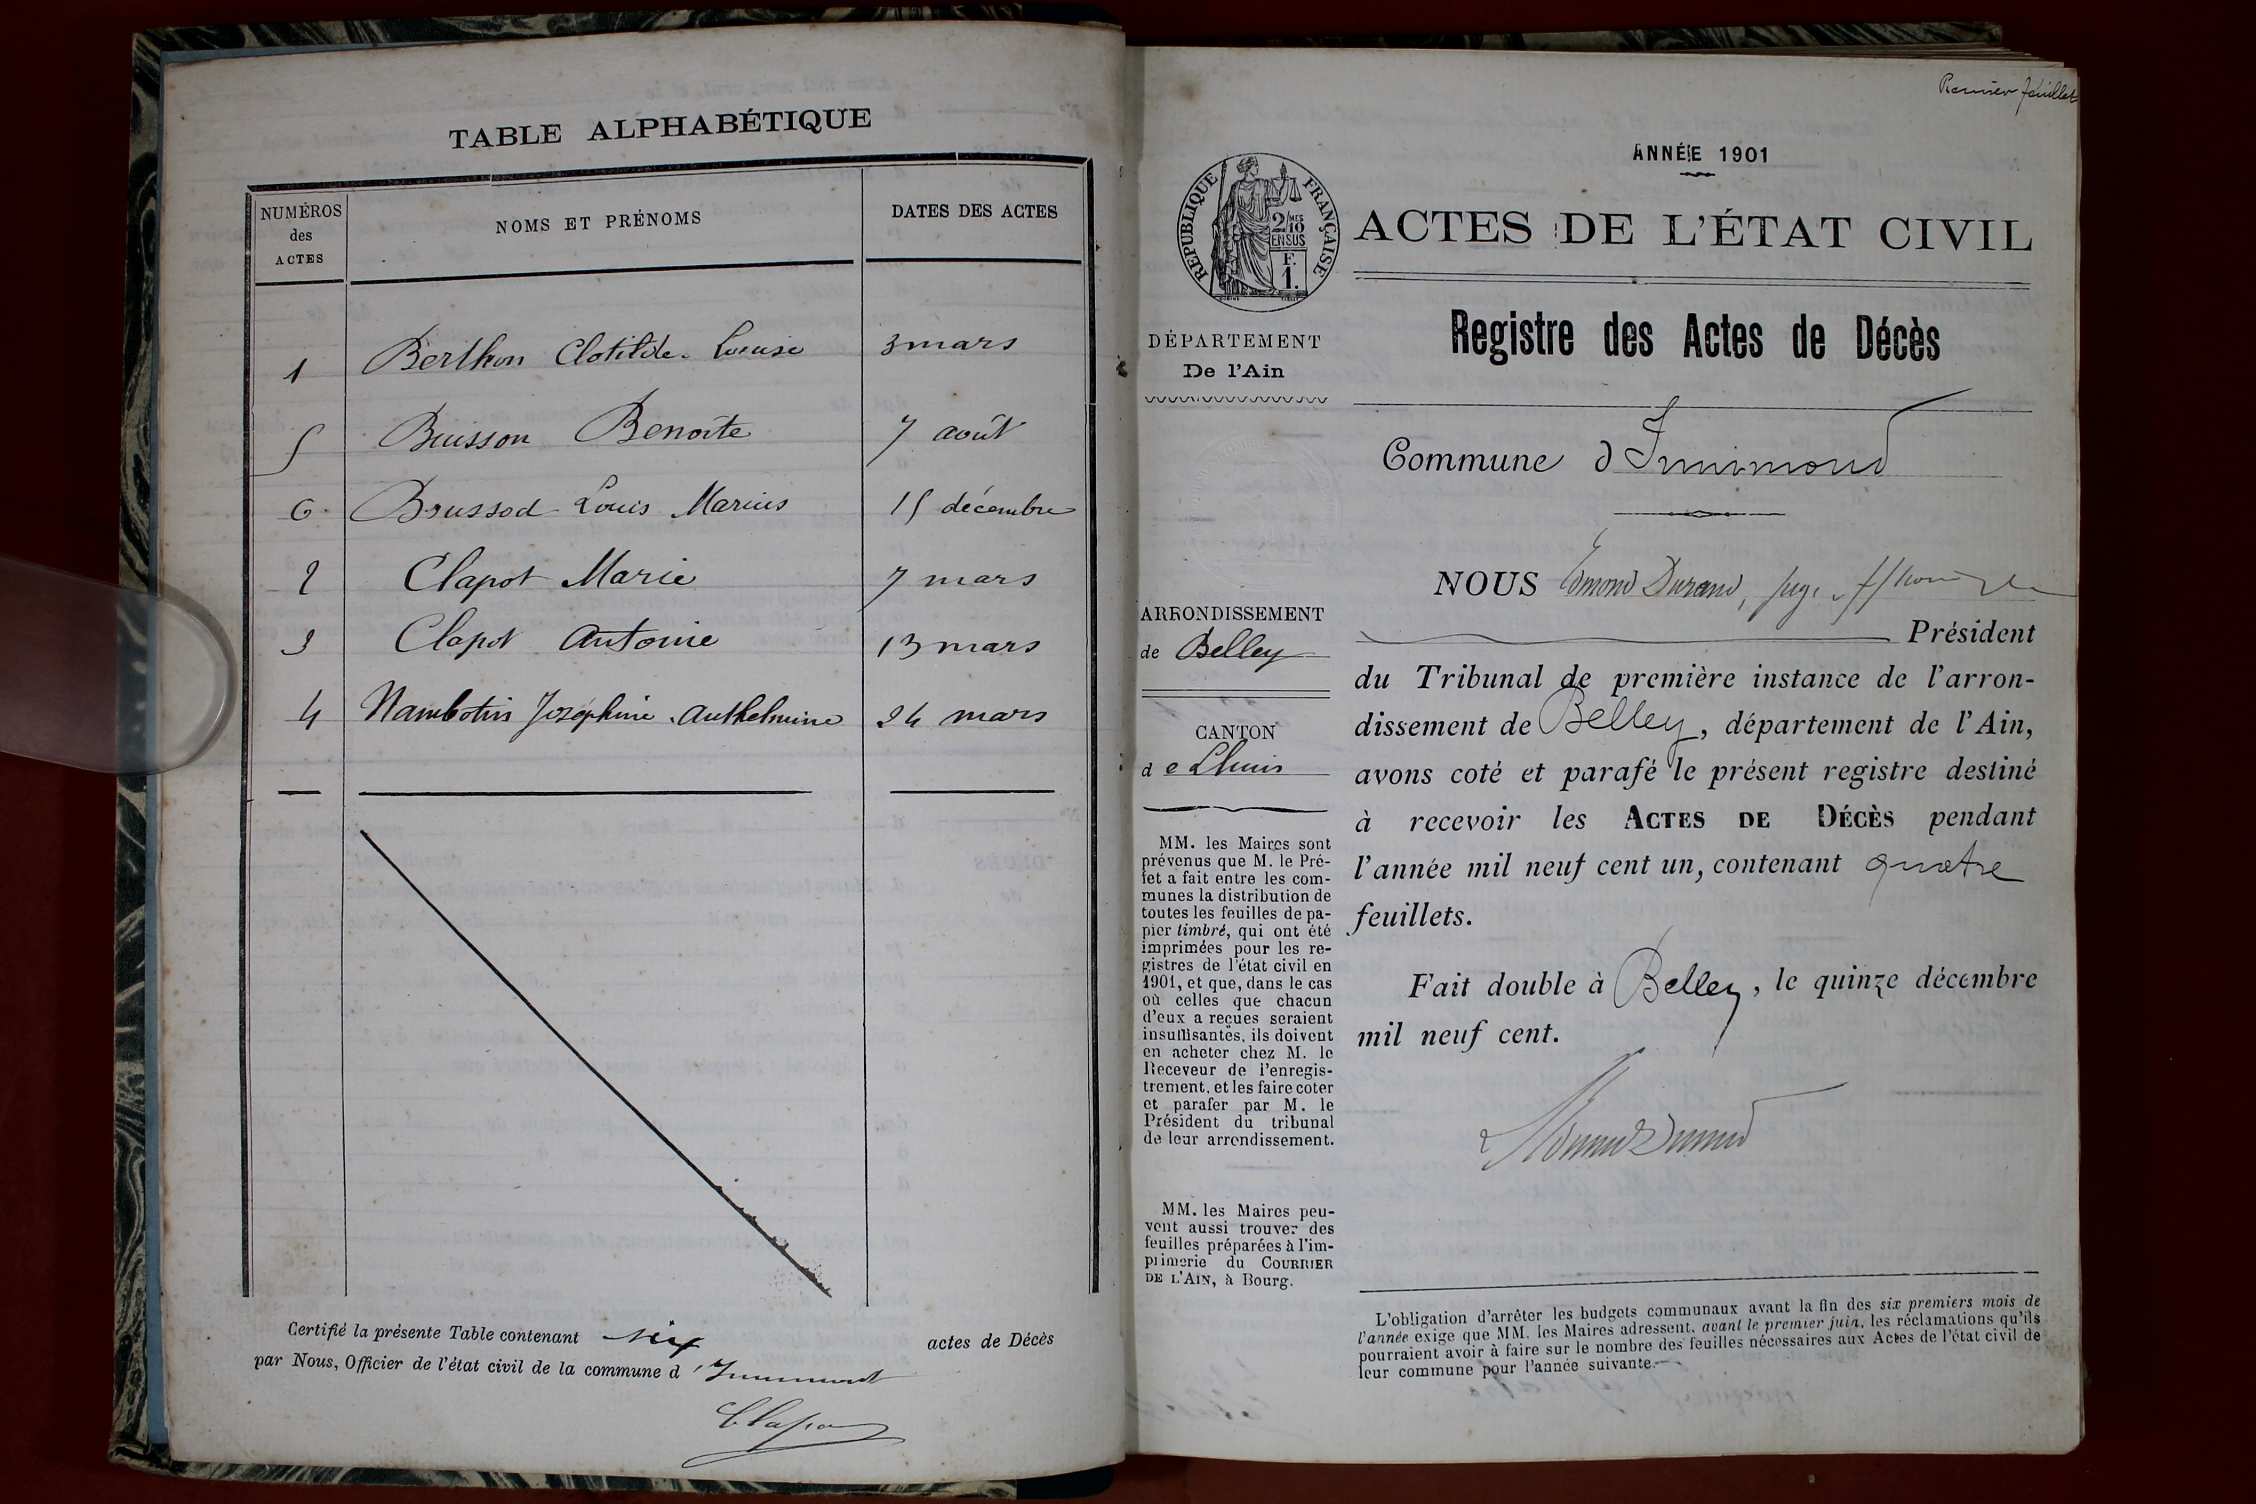 TABLE ALPHABÉTIQUE
NUMÉROS
des
ACTES
NOMS ET PRÉNOMS
DATES DES ACTES
1 Berthon Clotilde Louise 3 mars
5 Buisson Benoîte 7 août
6 Broussod Louis Marius 15 décembre
2 Clapot Marie 7 mars
3 Clapot Antoine 13 mars
4 Nambotin Joséphine Anthelmine 24 mars
Certifié la présente Table contenant six actes de Décès
par Nous, Officier de l'état civil de la commune d'Innimond
Clapot
Premier feuillet
ANNÉE 1901
RÉPUBLIQUE FRANÇAISE
2/10
MES
EN SUS
F.
1.
ACTES DE L'ÉTAT CIVIL
Registre des Actes de Décès
DÉPARTEMENT
De l'Ain
Commune d'Innimond
ARRONDISSEMENT
de Belley
CANTON
de Lhuis
MM. les Maires sont
prévenus que M. le Pré-
fet a fait entre les com-
munes la distribution de
toutes les feuilles de pa-
pier timbré, qui ont été
imprimées pour les re-
gistres de l'état civil en
1901, et que, dans le cas
où celles que chacun
d'eux a reçues seraient
insuffisantes, ils doivent
en acheter chez M. le
Receveur de l'enregis-
trement, et les faire coter
et parafer par M. le
Président du tribunal
de leur arrondissement.
MM. les Maires peu-
vent aussi trouver des
feuilles préparées à l'im-
primerie du COURRIER
DE L'AIN, à Bourg.
NOUS Edmond Durand, juge
Président
du Tribunal de première instance de l'arron-
dissement de Belley, département de l'Ain,
avons coté et parafé le présent registre destiné
à recevoir les ACTES DE DÉCÈS pendant
l'année mil neuf cent un, contenant quatre
feuillets.
Fait double à Belley, le quinze décembre
mil neuf cent.
Edmond Durand
L'obligation d'arrêter les budgets communaux avant la fin des six premiers mois de
l'année exige que MM. les Maires adressent, avant le premier juin, les réclamations qu'ils
pourraient avoir à faire sur le nombre des feuilles nécessaires aux Actes de l'état civil de
leur commune pour l'année suivante.